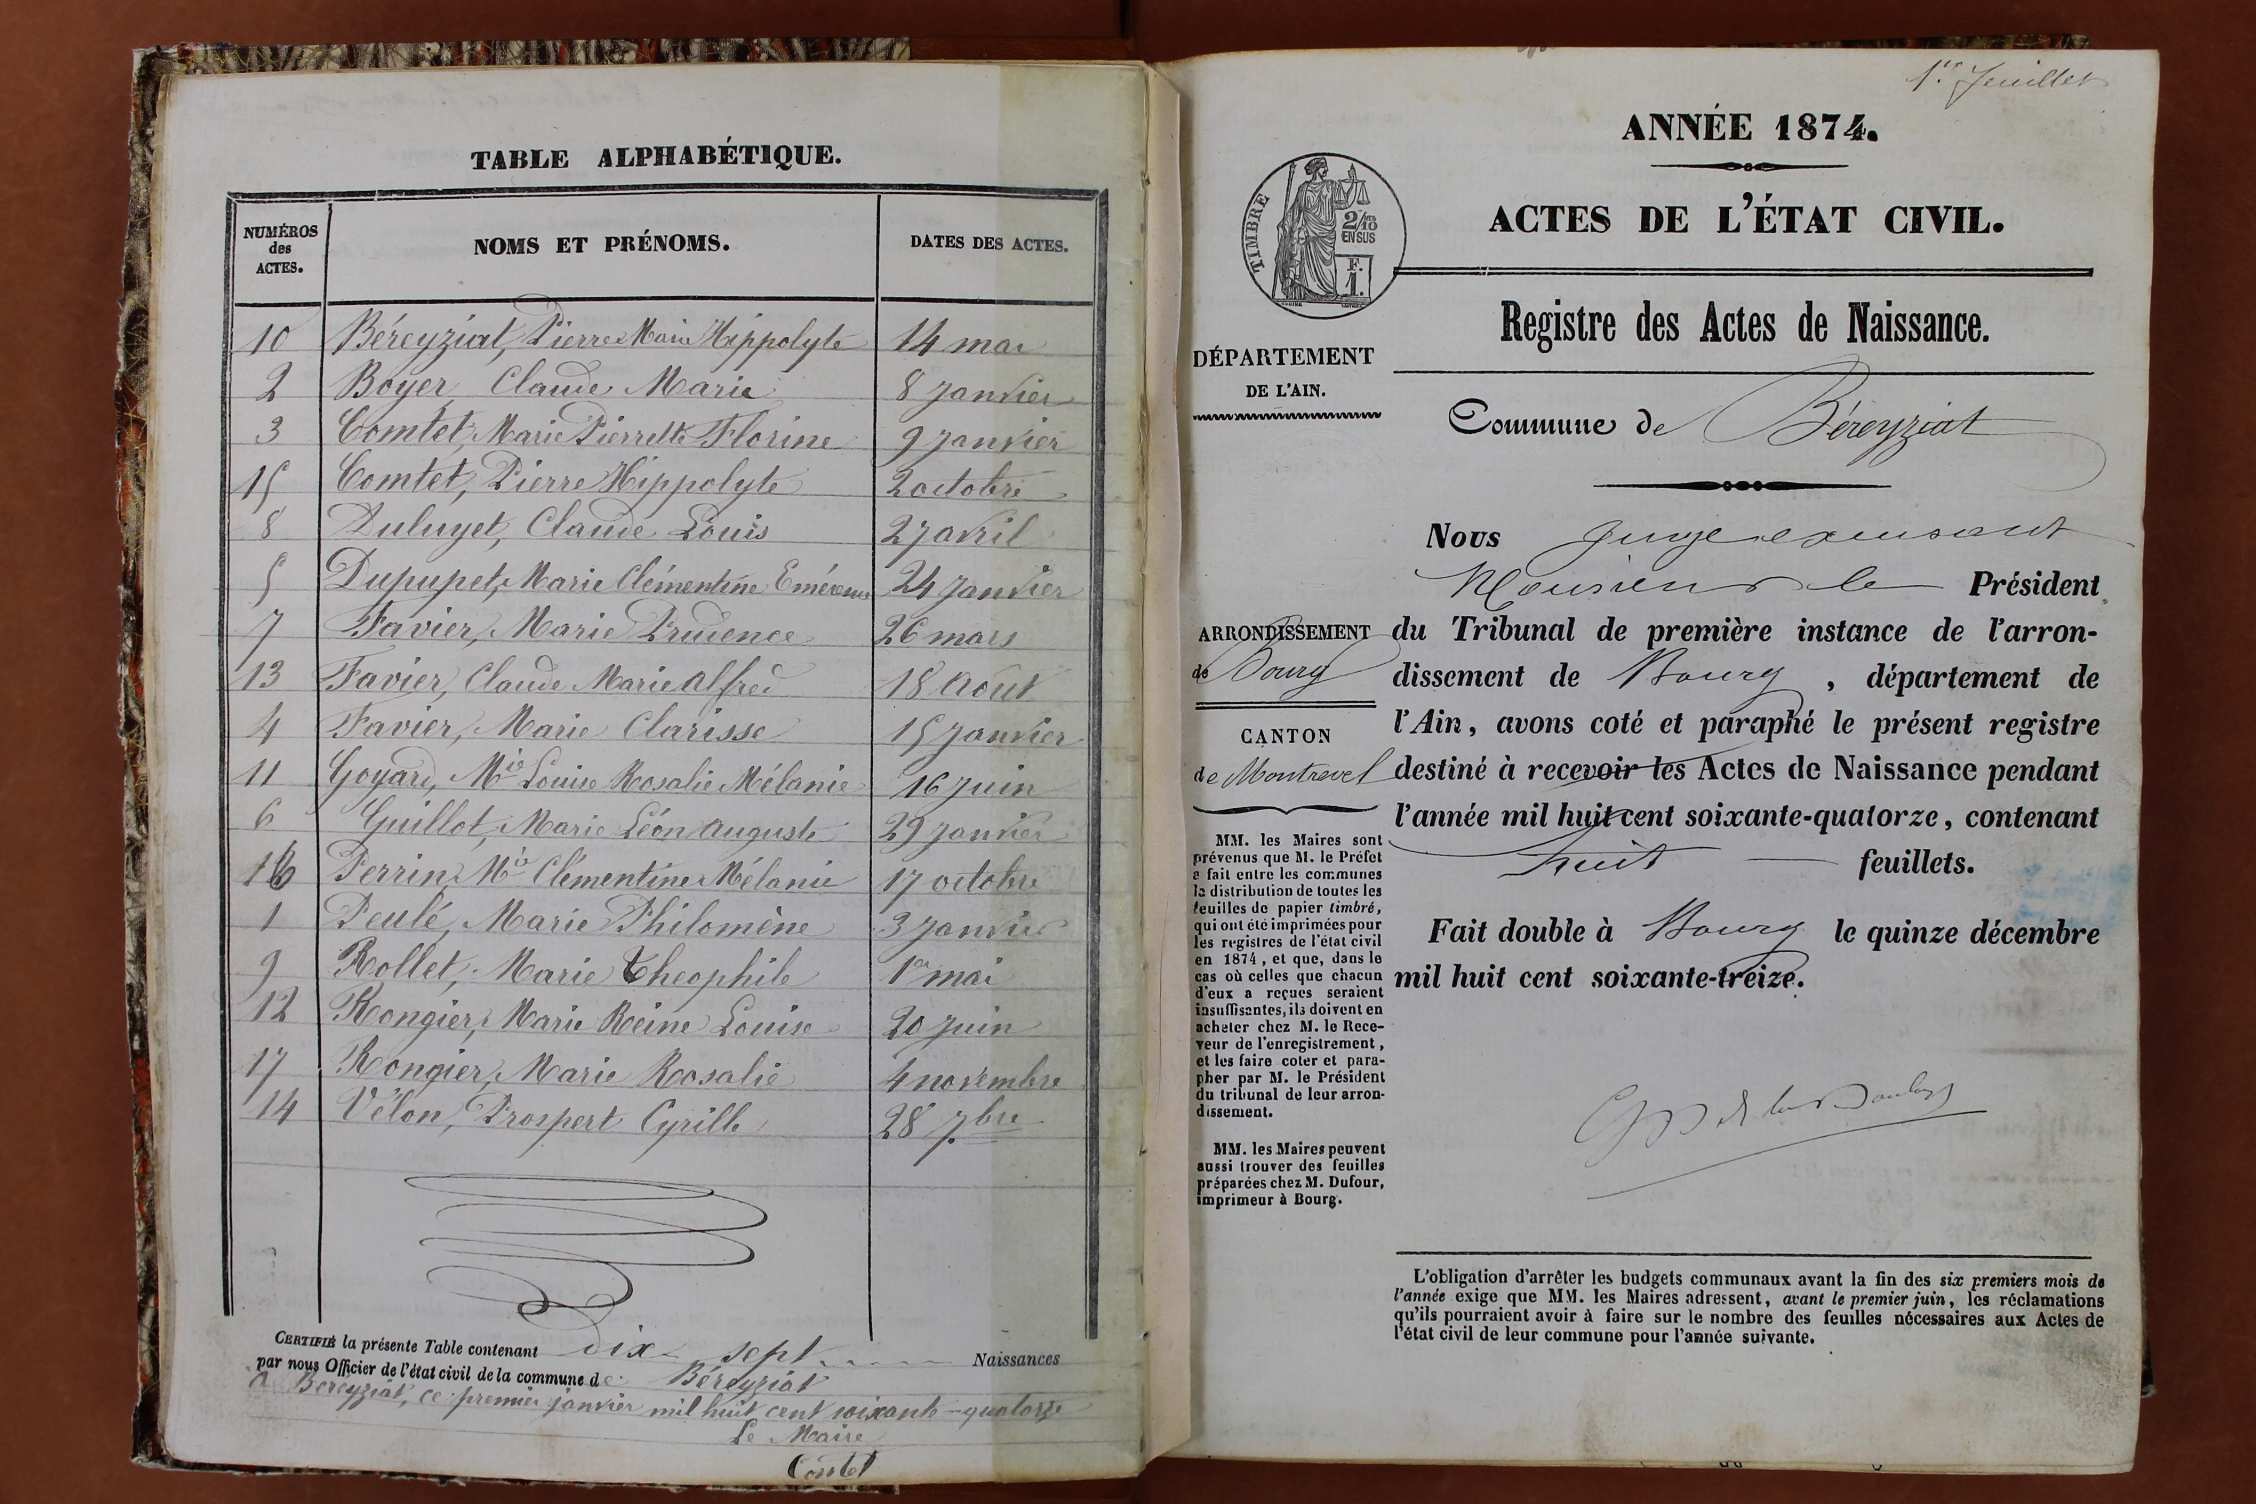 TABLE ALPHABÉTIQUE.
NUMÉROS des ACTES. NOMS ET PRÉNOMS. DATES DES ACTES.
10 Béreyziat, Pierre Marie Hippolyte 14 mai
2 Boyer Claude Marie 8 Janvier
3 Comtet, Marie Pierrette Florine 9 Janvier
15 Comtet, Pierre Hippolyte 2 octobre
8 Duluyet, Claude Louis 27 avril
5 Dupupet, Marie Clémentine 24 Janvier
7 Favier, Marie Prudence 26 mars
13 Favier, Claude Marie Alfred 18 Aout
4 Favier, Marie Clarisse 15 Janvier
11 Goyard, Mie Louise Rosalie Mélanie 16 Juin
6 Guillot, Marie Léon Auguste 29 Janvier
16 Perrin, Mie Clémentine Mélanie 17 octobre
1 Peulé, Marie Philomène 3 Janvier
9 Rollet, Marie Theophile 1er mai
12 Rongier, Marie Reine Louise 20 Juin
17 Rongier, Marie Rosalie 4 novembre
14 Vélon, Prospert Cyrille 28 7bre
CERTIFIÉ la présente Table contenant dix sept Naissances
par nous Officier de l'état civil de la commune de Béreyziat
A Béreyziat, ce premier janvier mil huit cent soixante-quatorze
Le Maire
Comtet
1er feuillet
ANNÉE 1874.
ACTES DE L'ÉTAT CIVIL.
TIMBRE
2/10
EN SUS
F.
1.
Registre des Actes de Naissance.
DÉPARTEMENT
DE L'AIN.
Commune de Béreyziat
Nous Juge excusant
Monsieur le Président
du Tribunal de première instance de l'arron-
dissement de Bourg, département de
l'Ain, avons coté et paraphé le présent registre
destiné à recevoir les Actes de Naissance pendant
l'année mil huit cent soixante-quatorze, contenant
huit feuillets.
Fait double à Bourg le quinze décembre
mil huit cent soixante-treize.
ARRONDISSEMENT
de Bourg
CANTON
de Montrevel
MM. les Maires sont
prévenus que M. le Préfet
a fait entre les communes
la distribution de toutes les
feuilles de papier timbré,
qui ont été imprimées pour
les registres de l'état civil
en 1874, et que, dans le
cas où celles que chacun
d'eux a reçues seraient
insuffisantes, ils doivent en
acheter chez M. le Rece-
veur de l'enregistrement,
et les faire coter et para-
pher par M. le Président
du tribunal de leur arron-
dissement.
MM. les Maires peuvent
aussi trouver des feuilles
préparées chez M. Dufour,
imprimeur à Bourg.
L'obligation d'arrêter les budgets communaux avant la fin des six premiers mois de
l'année exige que MM. les Maires adressent, avant le premier juin, les réclamations
qu'ils pourraient avoir à faire sur le nombre des feuilles nécessaires aux Actes de
l'état civil de leur commune pour l'année suivante.